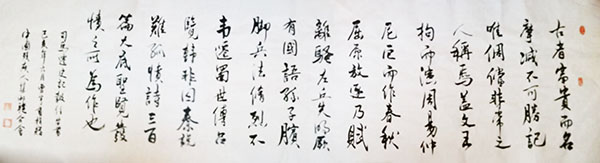 古者富貴而名
摩滅不可勝記
唯倜儻非常之
人稱焉蓋文王
拘而演周易仲
尼厄而作春秋
屈原放逐乃賦
離騷左丘失明厥
有國語孫子臏
腳兵法修列不
韋遷蜀世傳呂
覽韓非囚秦說
難孤憤詩三百
篇大底聖賢發
憤之所為作也
司馬遷史記報任安書
己亥年六月
中國